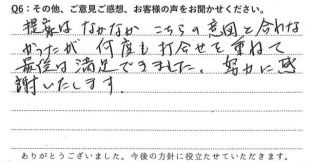 Q6：その他、ご意見ご感想、お客様の声をお聞かせください。
提案はなかなか こちらの意図と合わな
かったが 何度も打合せを重ねて
最後は満足できました。努力に感
謝いたします。
ありがとうございました。今後の方針に役立たせていただきます。